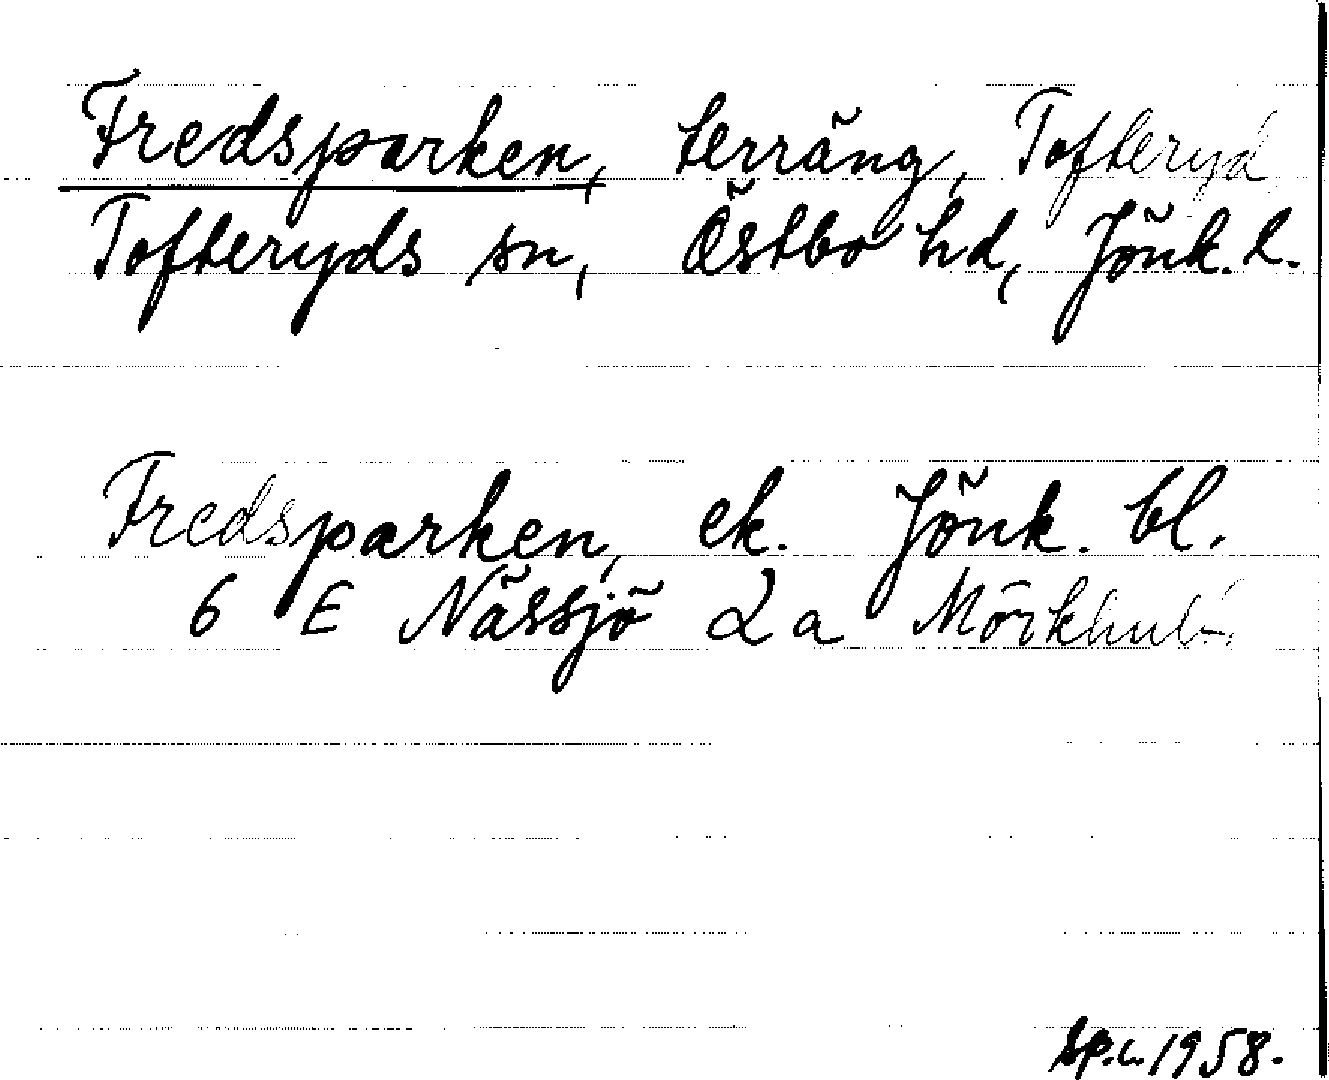 Fredsparken, terräng, Tofteryd
Tofteryds sn, Östbo hd, Jönk. l.
Fredsparken, ek. Jönk. bl.
6 E Nässjö 2 a Mörkhult.
1958.